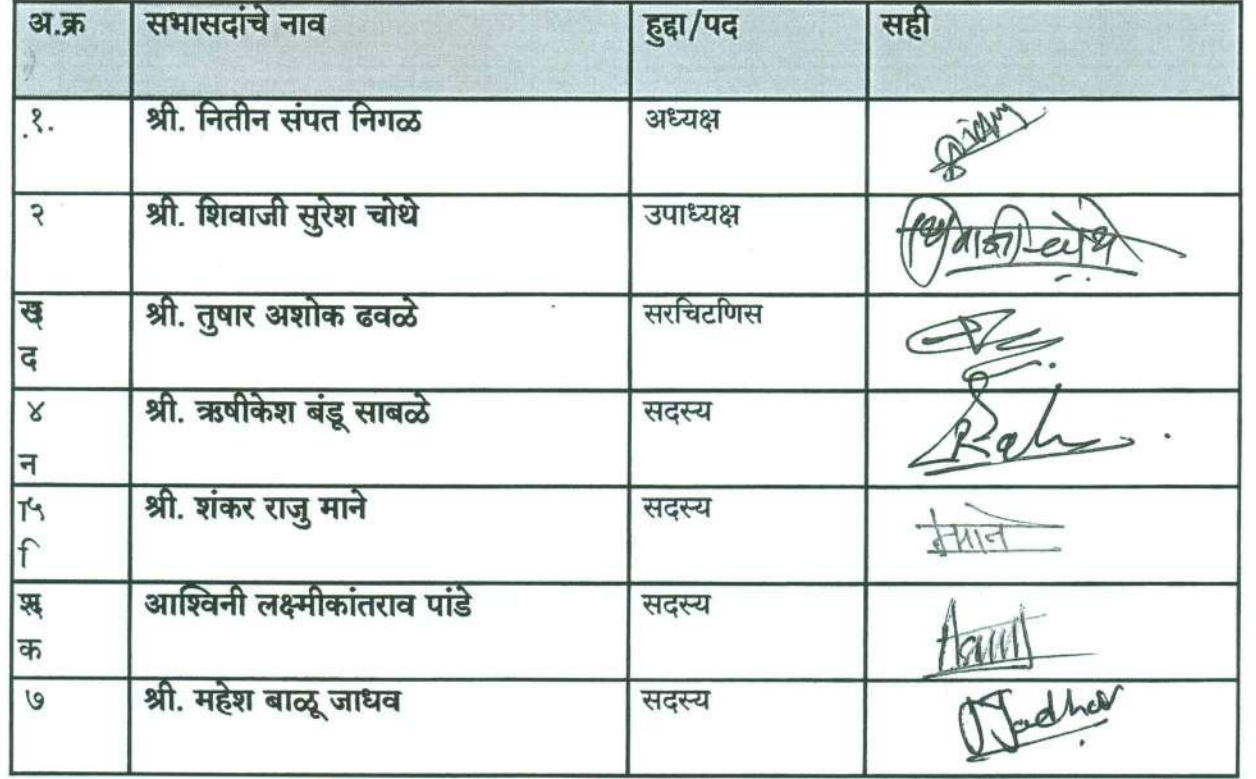 अ.क्र सभासदांचे नाव हुद्दा/पद सही
१. श्री. नितीन संपत निगळ अध्यक्ष
२ श्री. शिवाजी सुरेश चोथे उपाध्यक्ष शिवाजी चोथे
श्री. तुषार अशोक ढवळे सरचिटणिस
द
४ श्री. ऋषीकेश बंडू साबळे सदस्य
न
श्री. शंकर राजु माने सदस्य माने
आश्विनी लक्ष्मीकांतराव पांडे सदस्य
क
७ श्री. महेश बाळू जाधव सदस्य Jadhav